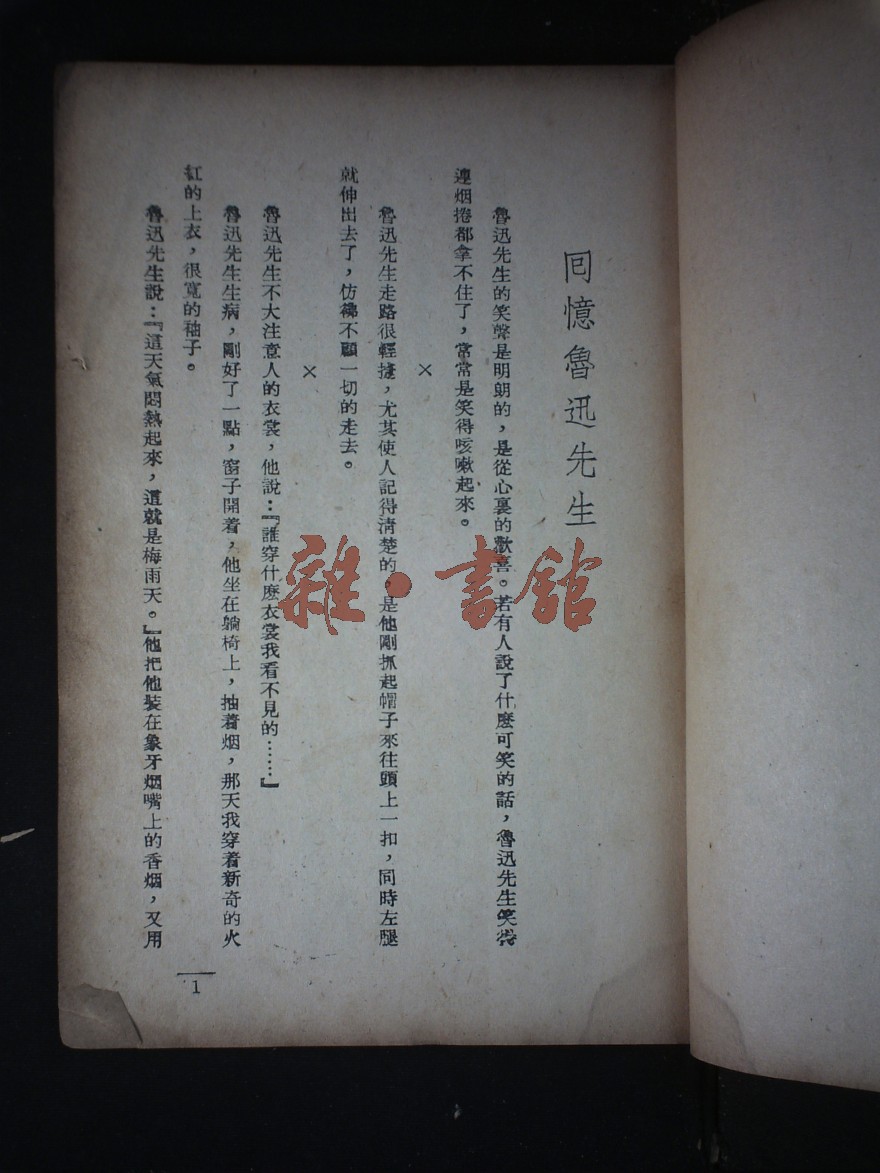 回憶魯迅先生
魯迅先生的笑聲是明朗的，是從心裏的歡喜。若有人說了什麽可笑的話，魯迅先生笑得
連烟捲都拿不住了，常常是笑得咳嗽起來。
×
魯迅先生走路很輕捷，尤其使人記得淸楚的，是他剛抓起帽子來往頭上一扣，同時左腿
就伸出去了，仿彿不顧一切的走去。
×
魯迅先生不大注意人的衣裳，他說：『誰穿什麽衣裳我看不見的……』
魯迅先生生病，剛好了一點，窗子開着，他坐在躺椅上，抽着烟，那天我穿着新奇的火
紅的上衣，很寬的袖子。
魯迅先生說：『這天氣悶熱起來，這就是梅雨天。』他把他裝在象牙烟嘴上的香烟，又用
1
雜·書館